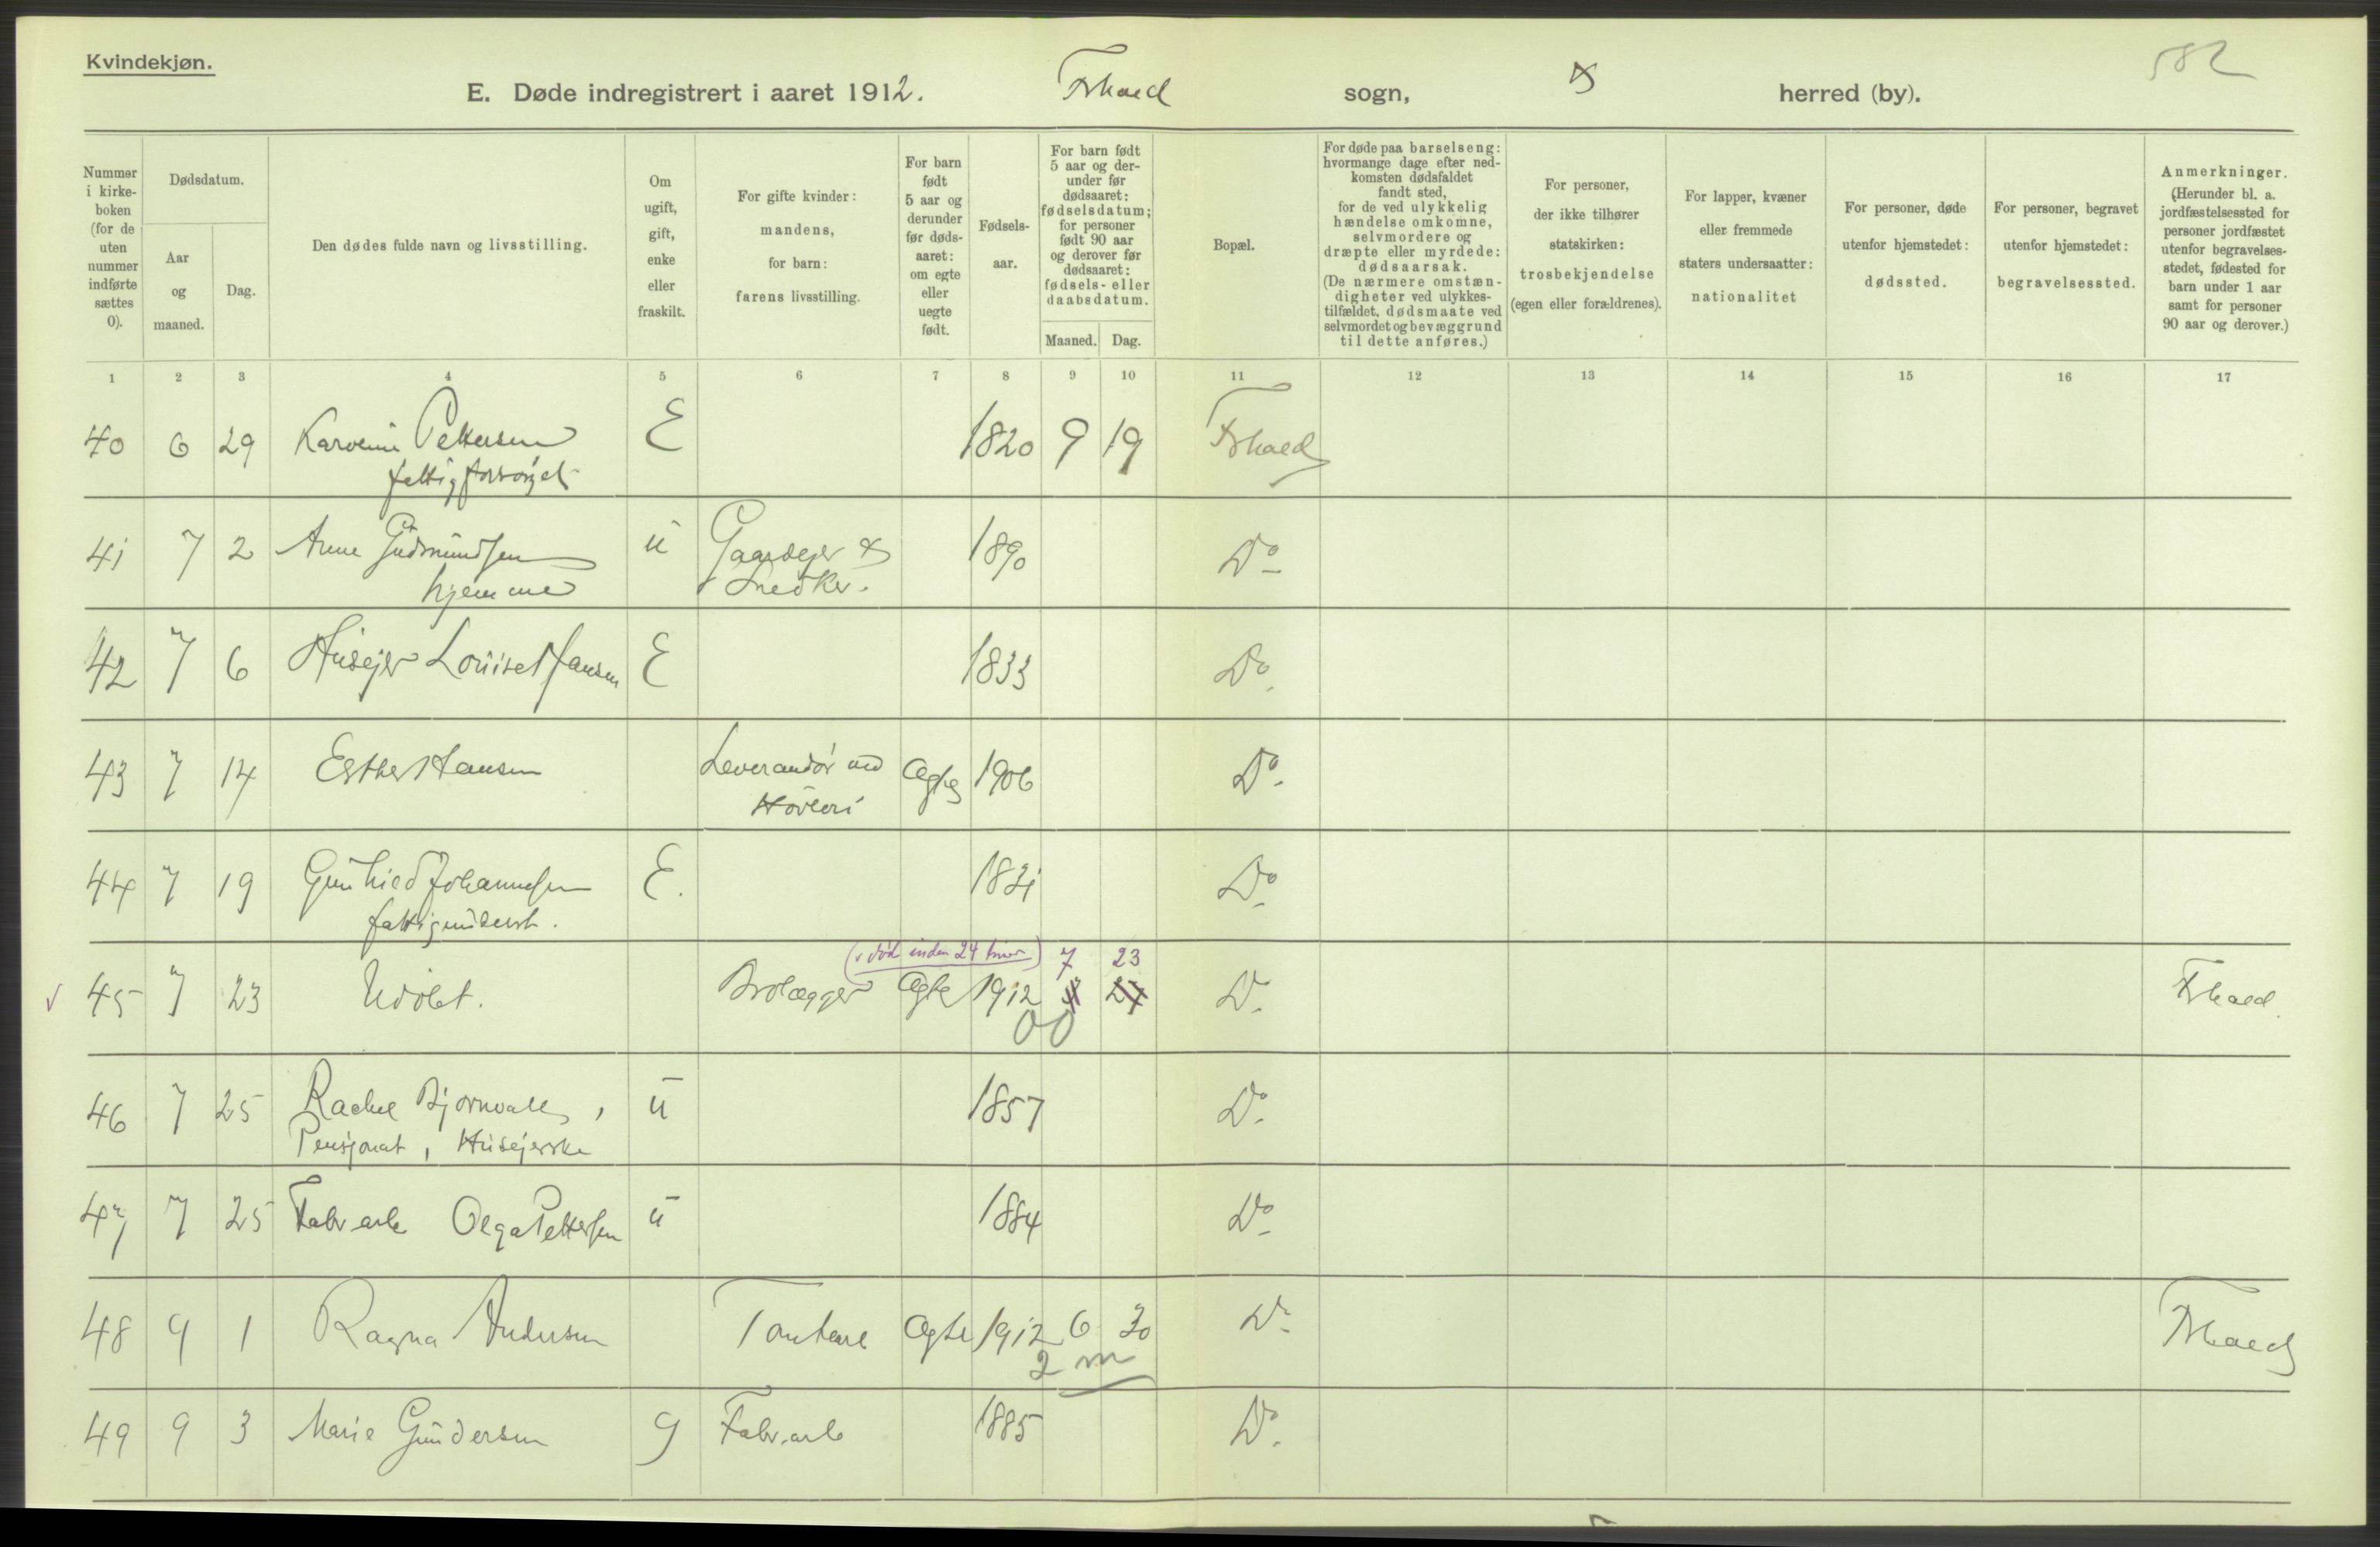 Kvindekjøn.
582
E. Døde indregistrert i aaret 1912. Frhald sogn, herred (by).
Nummer i kirke-boken (for de uten nummer indførte sættes 0).
Dødsdatum.
Aar og maaned.
Dag.
Den dødes fulde navn og livsstilling.
Om ugift, gift, enke eller fraskilt.
For gifte kvinder: mandens, for barn: farens livsstilling.
For barn født 5 aar og derunder før døds-aaret: om egte eller uegte født.
Fødsels-aar.
For barn født 5 aar og der-under før dødsaaret: fødselsdatum; for personer født 90 aar og derover før dødsaaret: fødsels- eller daabsdatum.
Maaned. Dag.
Bopæl.
For døde paa barselseng: hvormange dage efter ned-komsten dødsfaldet fandt sted, for de ved ulykkelig hændelse omkomne, selvmordere og dræpte eller myrdede: dødsaarsak. (De nærmere omstæn-digheter ved ulykkes-tilfældet, dødsmaate ved selvmordet og bevæggrund til dette anføres.)
For personer, der ikke tilhører statskirken: trosbekjendelse (egen eller forældrenes).
For lapper, kvæner eller fremmede staters undersaatter: nationalitet
For personer, døde utenfor hjemstedet: dødssted.
For personer, begravet utenfor hjemstedet: begravelsessted.
Anmerkninger. (Herunder bl. a. jordfæstelsessted for personer jordfæstet utenfor begravelses-stedet, fødested for barn under 1 aar samt for personer 90 aar og derover.)
1 2 3 4 5 6 7 8 9 10 11 12 13 14 15 16 17
40 6 29 Pettersen E 1820 9 19 Frhald
41 7 2 Anne Gudmundsen u Gaardejer & 1890 Do
hjemme Snedker.
42 7 6 Husejer Louise Hansen E 1833 Do
43 7 14 Esther Hansen Leverandør ved Ægte 1906 Do
Høvleri
44 7 19 Gunhild Johannesen E. 1831 Do
fattigunderst.
(v død inden 24 timer) 7 23
45 7 23 Udøbt. Brolægger Ægte 1912 4 24 Do Frhald.
00
46 7 25 Rachel Bjornvall, u 1857 Do
Pensjonat, Husejerske
47 7 25 Fabr.arb Olga Pettersen u 1884 Do
48 9 1 Ragna Andersen Ægte 1912 6 30 Do Frhald
2 m
49 9 3 Marie Gundersen g Fabr.arb 1885 Do